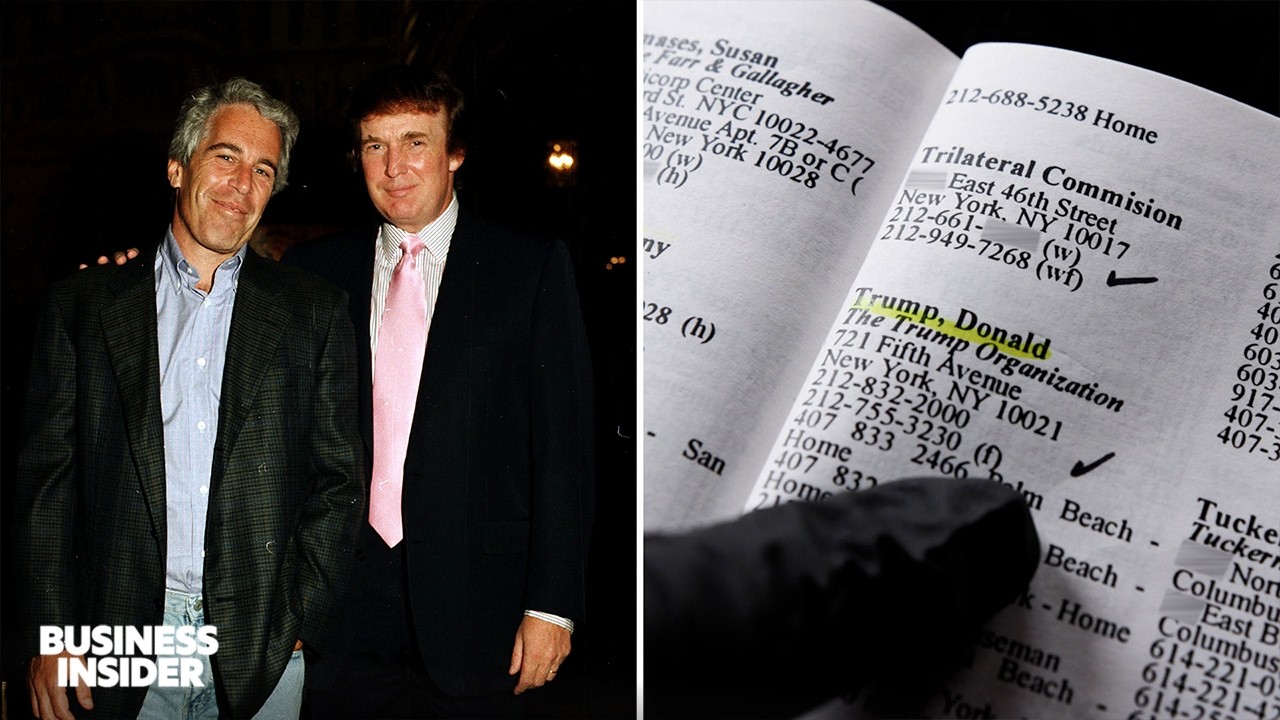 BUSINESS
INSIDER
mases, Susan
Farr & Gallagher
icorp Center
rd St. NYC 10022-4677
Avenue Apt. 7B or C (
New York 10028
00 (w)
(h)
ny
28 (h)
-
San
212-688-5238 Home
Trilateral Commision
East 46th Street
New York, NY 10017
212-661- (w)
212-949-7268 (wf)
Trump, Donald
The Trump Organization
721 Fifth Avenue
New York, NY 10021
212-832-2000
212-755-3230 (f)
407 833 2466 Palm Beach -
Home
407 832 Beach -
Home
- Home
seman
Beach
York
Tucke
Tuckerm
Nor
Columbu
East B
Columbus
614-221-0
614-221-4
614-2
6
6
40
40
603
603
917-
407-
407-3